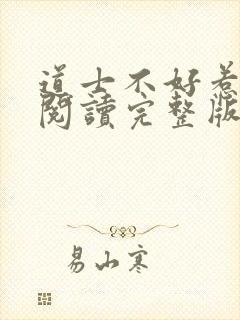 道士不好惹
閱讀完整版
易山寒